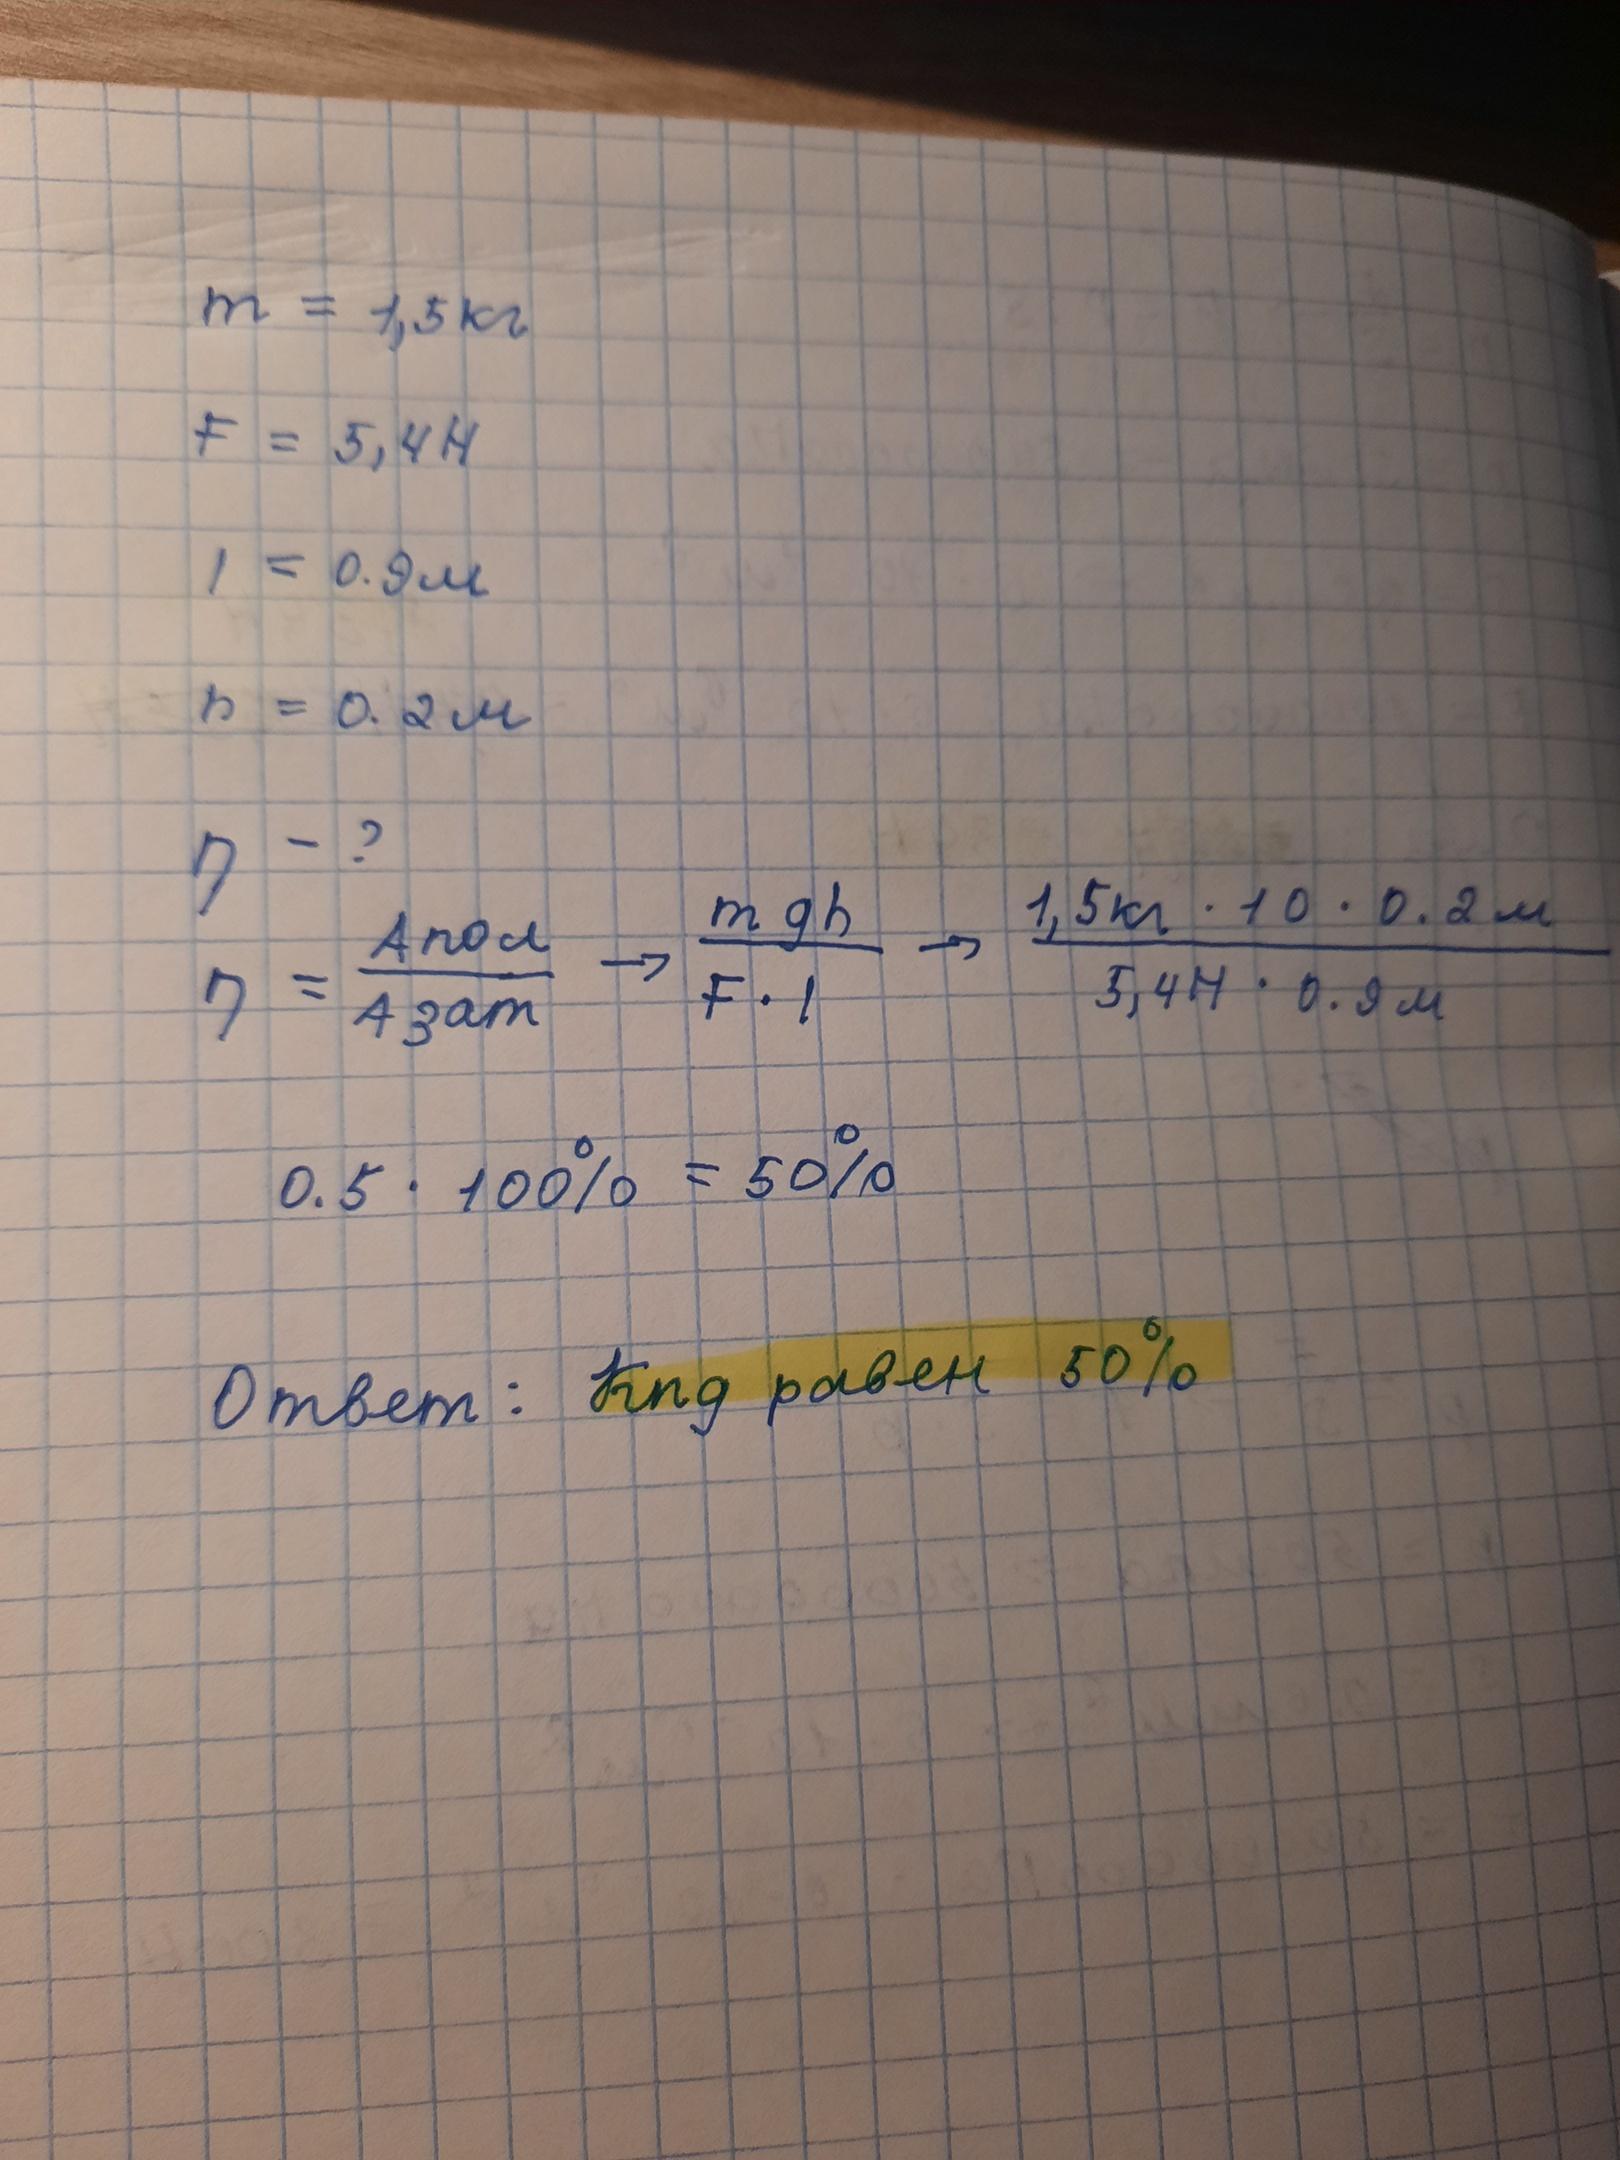 m = 1,5кг
F = 5,4Н
l = 0.9м
h = 0.2м
η - ?
η = Aпол / Aзат → mgh / F · l → 1,5кг · 10 · 0.2м / 5,4Н · 0.9м
0.5 · 100% = 50%
Ответ: Кпд равен 50%